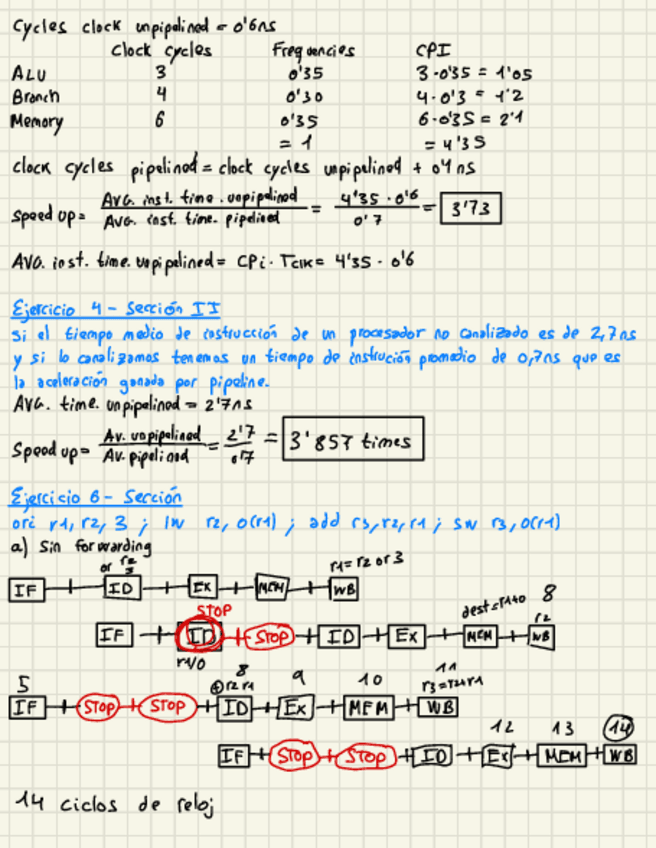 Cycles clock unpipelined = 0'6ns
Clock cycles Frequencies CPI
ALU 3 0'35 3·0'35 = 1'05
Branch 4 0'30 4·0'3 = 1'2
Memory 6 0'35 6·0'35 = 2'1
= 1 = 4'35
clock cycles pipelined = clock cycles unpipelined + 0'1 ns
Speed up = AVG. inst. time. unpipelined / AVG. inst. time. pipelined = 4'35 · 0'6 / 0'7 = 3'73
AVG. inst. time. unpipelined = CPI · TCLK = 4'35 · 0'6
Ejercicio 4 - Sección II
Si el tiempo medio de instrucción de un procesador no canalizado es de 2,7ns
y si lo canalizamos tenemos un tiempo de instrución promedio de 0,7ns que es
la aceleración ganada por pipeline.
AVG. time. unpipelined = 2'7ns
Speed up = Av. unpipelined / Av. pipelined = 2'7 / 0'7 = 3'857 times
Ejercicio 6 - Sección
ori r1, r2, 3 ; lw r2, 0(r1) ; add r3, r2, r1 ; sw r3, 0(r1)
a) Sin forwarding
or r2 3 r1 = r2 or 3
IF ID EX MEM WB
STOP dest = r1+0 8
IF ID STOP ID EX MEM r2 WB
r1/0
5 8 9 10 11
⊕ r2 r1 r3 = r2+r1
IF STOP STOP ID EX MEM WB
12 13 14
IF STOP STOP ID EX MEM WB
14 ciclos de reloj